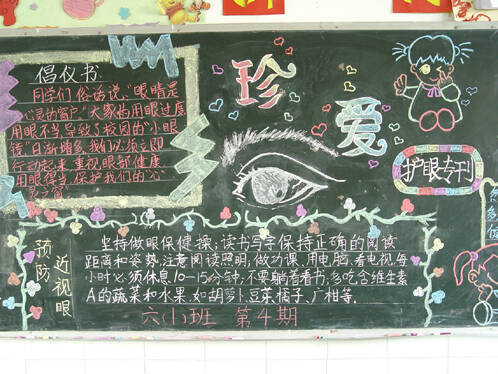 倡仪书
同学们俗话说:"眼睛是
心灵的窗户"大家为用眼过度
用眼不当导致了校园的"小眼
镜"日渐增多,我们必须立即
行动起来,重视眼部健康
用眼得当,保护我们的"心
灵之窗"
珍
爱
护眼专刊
预防
近视眼
坚持做眼保健操;读书写字保持正确的阅读
距离和姿势,注意阅读照明,做功课、用电脑、看电视,每
小时必须休息10-15分钟,不要躺着看书;多吃含维生素
A的蔬菜和水果,如胡萝卜、豆菜、橘子、广柑等。
六(1)班 第4期